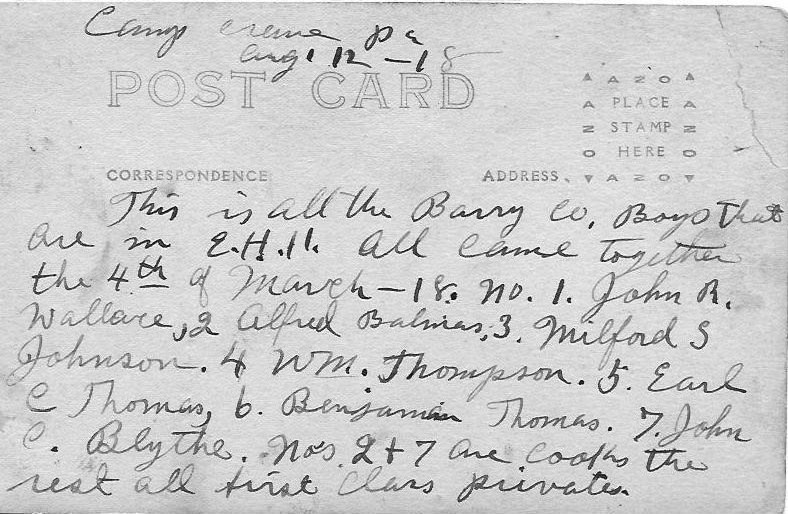 Camp Crane Pa
Aug. 12 - 18
POST CARD
AZO
PLACE
STAMP
HERE
AZO
CORRESPONDENCE
ADDRESS.
This is all the Barry Co. Boys that
are in E.H.H. All came together
the 4th of March - 18. No. 1. John R.
Wallace, 2 Alfred Balmas, 3. Milford S
Johnson. 4 WM. Thompson. 5. Earl
C Thomas, 6. Benjaman Thomas. 7. John
C. Blythe. No's 2 + 7 are cooks the
rest all first class privates.